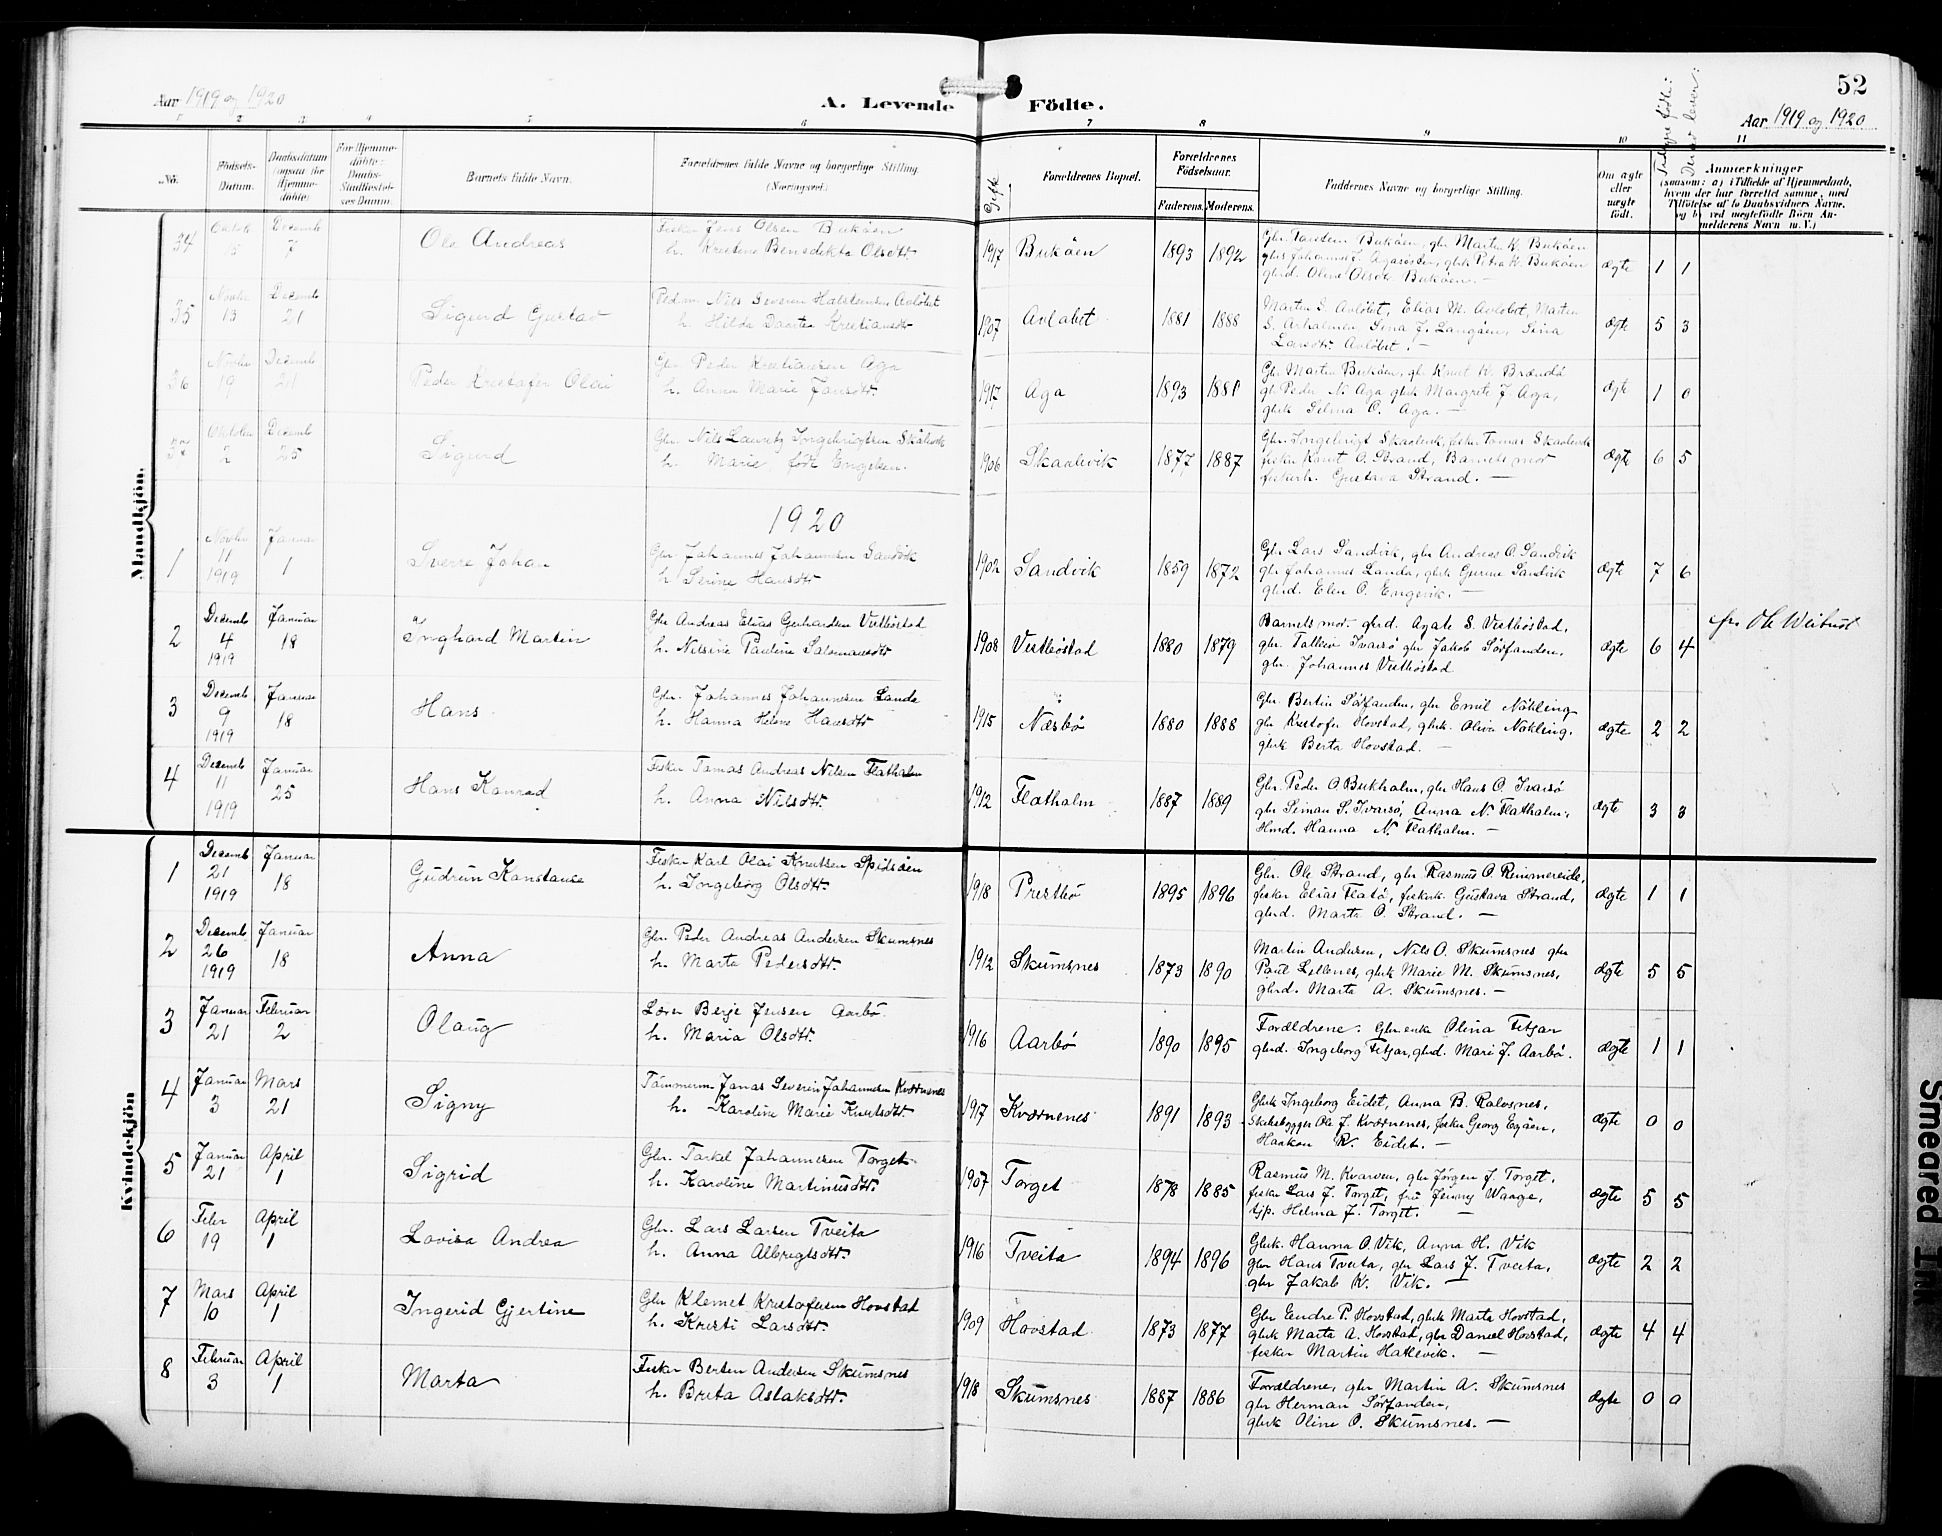 52
Aar 1919 og 1920
A. Levende Födte.
Tidligere födte:
Deraf lever:
Aar 1919 og 1920
1 2 3 4 5 6 7 8 9 10 11
No.
Födsels-Datum.
Daabsdatum (ogsaa for Hjemme-döbte)
For Hjemme-döbte: Daabs-Stadfæstel-ses-Datum.
Barnets fulde Navn.
Forældrenes fulde Navne og borgerlige Stilling. (Næringsvei.)
Gift
Forældrenes Bopæl.
Forældrenes Födselsaar.
Faderens. Moderens.
Faddernes Navne og borgerlige Stilling.
Om ægte eller uægte födt.
Anmærkninger
(saasom: a) i Tilfælde af Hjemmedaab, hvem der har forrettet samme, med Tilföielse af to Daabsvidners Navne, og b) ved uægtefödte Börn An-melderens Navn m. V.)
Mandkjön.
34 Oktob 15 Decemb 7 Ole Andreas Fisker Jens Olsen Buköen
h. Kristine Benedikte Olsdtr. 1917 Buköen 1893 1892 Gbr. Torsten Buköen, gbr Martin K. Buköen
gbrs Johannes L. Agasösten, gbrk Petra K. Buköen
gbrd. Olina Olsdtr Buköen. ægte 1 1
35 Novbr 13 Decemb 21 Sigurd Gustav Pedm. Nils Severin Halstensen Avlöbet
h. Hilda Dorta Kristiansdtr 1907 Avlöbet 1881 1888 Marton S. Avlöbet, Elias M. Avlöbet, Marton
S. Arholmen, Sena J. Langöen, Sina
Larsdtr. Avlöbet. ægte 5 3
36 Novbr 19 Decemb 21 Peder Kristofer Olai Gbr. Peder Kristiansen Aga
h. Anna Marie Jansdtr. 1917 Aga 1893 1881 Gbr. Martin Buköen, gbr Knut K. Brændö
gbr Peder N. Aga gbrk Margrete J. Aga,
gbrk Selma O. Aga. — ægte 1 0
37 Oktober 2 Decemb 25 Sigurd Gbr. Nils Lauritz Ingebrigtsen Skålevik
h. Marie, födt Engelsen. 1906 Skaalevik 1877 1887 Gbr. Ingebrigt Skaalevik, fisker Tomas Skaalevik
fisker Knut O. Strand, Barnets mor
fiskerh. Gustava Strand. — ægte 6 5
1920
1 Novbr 11 1919 Januar 1 Sverre Johan Gbr. Johannes Johannesen Sandvik
h. Serine Hansdtr 1902 Sandvik 1859 1872 Gbr. Lars Sandvik, gbr Andreas O. Sandvik
gbr Johannes Landa, gbrk Gurine Sandvik
gbrd. Elen O. Engevik. — ægte 7 6
2 Decemb 4 1919 Januar 18 Inghard Martin Gbr Andreas Elias Gerhardsen Vestböstad
h. Nilsine Pauline Salamonsdtr 1908 Vestböstad 1880 1879 Barnets mor. gbrd. Agate S. Vestböstad,
gbr. Tolleiv Ivarsö gbr Jakob Sörfonden,
gbr. Johannes Vestböstad ægte 6 4
3 Decemb 9 1919 Januar 18 Hans Gbr. Johannes Johannesen Landa
h. Hanna Helene Hansdtr 1915 Næsbö 1880 1888 Gbr Bertin Sörfonden, gbr Emil Nökling
gbr Kristofer Hovstad, gbrk. Oliva Nökling,
gbrk Berta Hovstad. — ægte 2 2
4 Decemb 11 1919 Januar 25 Hans Konrad Fisker Tomas Andreas Nilsen Flatholm
h. Anna Nilsdtr. 1912 Flatholm 1887 1889 Gbr. Peder O. Bukholm, gbr Hans O. Ivarsö
gbr Seiman S. Ivarsö, Anna N. Flatholm,
Hmd. Hanna N. Flatholm. — ægte 3 3
Kvindekjön
1 Decemb 21 1919 Januar 18 Gudrun Konstanse Fisker Karl Olai Knutsen Spidsöen
h. Ingeborg Olsdtr. 1918 Prestbö 1895 1896 Gbr. Ole Strand, gbr Rasmus O. Rimmereide,
fisker Elias Flatö, fiskerk Gustava Strand,
gbrd. Marta O. Strand. — ægte 1 1
2 Decemb 26 1919 Januar 18 Anna Gbr. Peder Andreas Andersen Skumsnes
h. Marta Pedersdtr. 1912 Skumsnes 1873 1890 Martin Andersen, Nils O. Skumsnes gbr
Paul Lillenes, gbrk Marie M. Skumsnes,
gbrd. Marta A. Skumsnes. — ægte 5 5
3 Januar 21 Februar 2 Olaug Lærer Berje Jensen Aarbö
h. Maria Olsdtr. 1916 Aarbö 1890 1895 Forældrene. Gbr.enke Olina Fitjar
gbrd. Ingeborg Fitjar, gbrd. Mari J. Aarbö. ægte 1 1
4 Januar 3 Mars 21 Signy Tömmerm Jonas Severin Johannesen Kværnenes
h. Karoline Marie Knutsdtr 1917 Kværnenes 1891 1893 Gbrk Ingeborg Eidet, Anna B. Rolvsnes,
Skibsbygger Ole J. Kværnenes, fisker Georg Egöen,
Haakon K. Eidet. — ægte 0 0
5 Januar 21 April 1 Sigrid Gbr. Torkel Johannesen Torget
h. Karoline Martinusdtr. 1907 Torget 1878 1885 Rasmus M. Kvarven, gbr Jörgen J. Torget,
fisker Lars J. Torget, fru Jenny Waage,
tjp. Helena J. Torget. — ægte 5 5
6 Febr 19 April 1 Lovisa Andrea Gbr. Lars Larsen Tveita
h. Anna Albregtsdtr. 1916 Tveita 1894 1896 Gbrk. Hanna O. Vik, Anna H. Vik
gbr Hans Tveita, gbr Lars J. Tveita,
gbr Jakob K. Vik. — ægte 2 2
7 Mars 10 April 1 Ingerid Gjertine Gbr Klemet Kristofersen Hovstad
h. Kristi Larsdtr. 1909 Hovstad 1873 1877 Gbr Endre P. Hovstad, gbrk Marta Hovstad,
gbrk Marta A. Hovstad, gbr Daniel Hovstad,
fisker Martin Hatlevik. — ægte 4 4
8 Februar 3 April 1 Marta Fisker Berten Andersen Skumsnes
h. Brita Aslaksdtr. 1918 Skumsnes 1887 1886 Forældrene, gbr Martin A. Skumsnes
gbr Herman Sörfonden,
gbrk Oline O. Skumsnes. — ægte 0 0
Smeared Ink